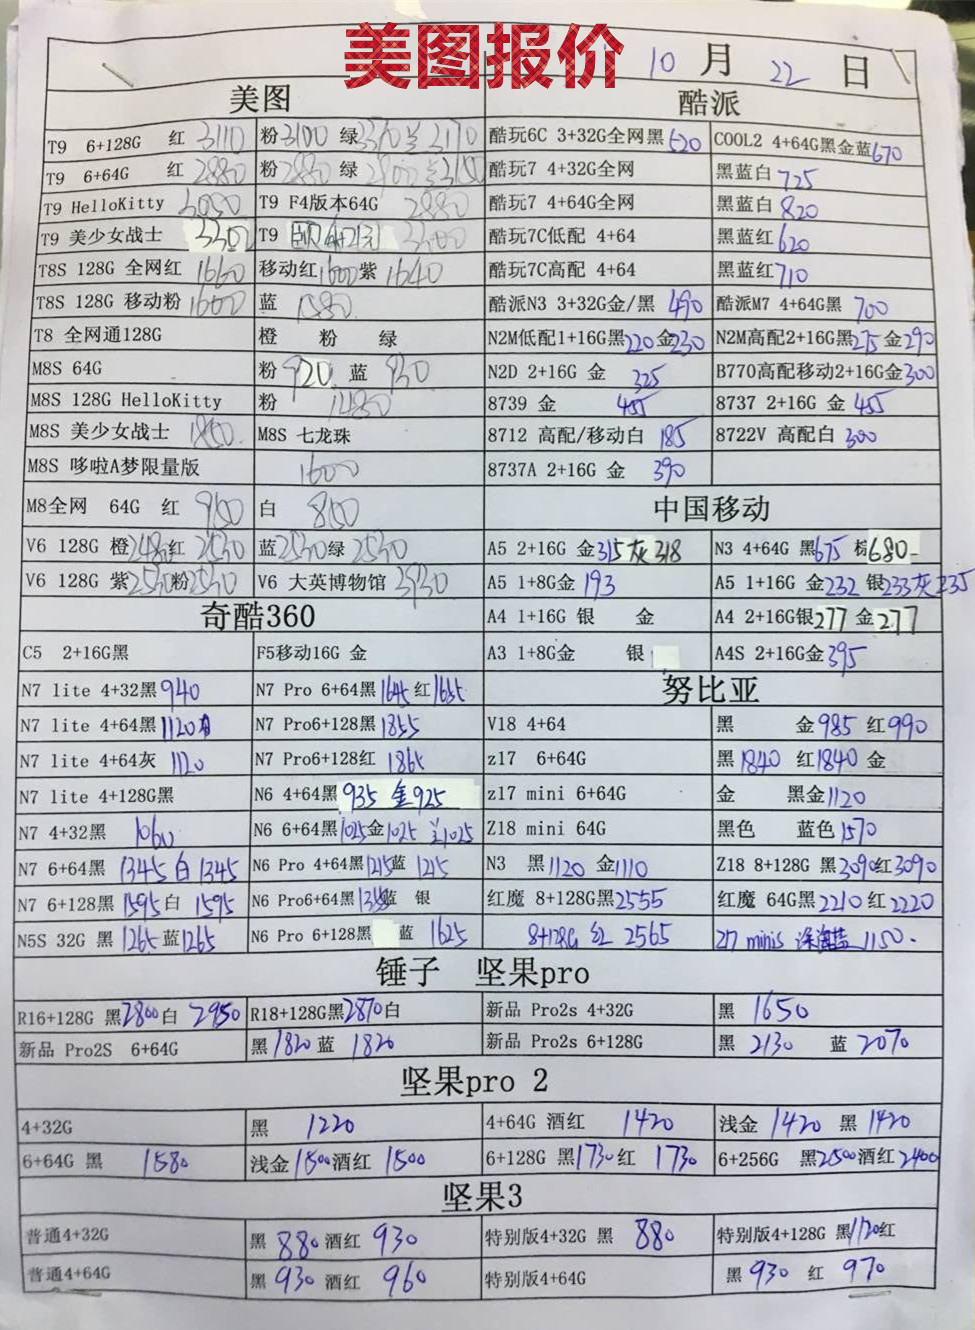 美图报价
10 月 22 日
美图 酷派
T9 6+128G 红 3110 粉 3100 绿 酷玩6C 3+32G全网黑 520 COOL2 4+64G黑金蓝 670
T9 6+64G 红 2880 粉 2880 绿 酷玩7 4+32G全网 黑蓝白 725
T9 HelloKitty 3050 T9 F4版本64G 2880 酷玩7 4+64G全网 黑蓝白 820
T9 美少女战士 3300 T9 3300 酷玩7C低配 4+64 黑蓝红 620
T8S 128G 全网红 1660 移动红 1600 紫 1640 酷玩7C高配 4+64 黑蓝红 710
T8S 128G 移动粉 1600 蓝 1580 酷派N3 3+32G金/黑 490 酷派M7 4+64G黑 700
T8 全网通128G 橙 粉 绿 N2M低配1+16G黑 220 金 230 N2M高配2+16G黑 275 金 290
M8S 64G 粉 920 蓝 930 N2D 2+16G 金 325 B770高配移动2+16G金 300
M8S 128G HelloKitty 粉 1480 8739 金 455 8737 2+16G 金 455
M8S 美少女战士 1850 M8S 七龙珠 8712 高配/移动白 185 8722V 高配白 300
M8S 哆啦A梦限量版 1600 8737A 2+16G 金 390
M8全网 64G 红 950 白 850 中国移动
V6 128G 橙 2480 红 2530 蓝 2530 绿 2530 A5 2+16G 金 315 灰 318 N3 4+64G 黑 675 棕 680
V6 128G 紫 2530 粉 2530 V6 大英博物馆 3930 A5 1+8G金 193 A5 1+16G 金 232 银 233 灰 235
奇酷360 A4 1+16G 银 金 A4 2+16G银 277 金 277
C5 2+16G黑 F5移动16G 金 A3 1+8G金 银 A4S 2+16G金 395
N7 lite 4+32黑 940 N7 Pro 6+64黑 1645 红 1655 努比亚
N7 lite 4+64黑 1120 N7 Pro6+128黑 1855 V18 4+64 黑 金 985 红 990
N7 lite 4+64灰 1120 N7 Pro6+128红 1865 z17 6+64G 黑 1840 红 1840 金
N7 lite 4+128G黑 N6 4+64黑 935 金 925 z17 mini 6+64G 金 黑金 1120
N7 4+32黑 1060 N6 6+64黑 1025 金 1025 兰 1025 Z18 mini 64G 黑色 蓝色 1570
N7 6+64黑 1345 白 1345 N6 Pro 4+64黑 1215 蓝 1215 N3 黑 1120 金 1110 Z18 8+128G 黑 3090 红 3090
N7 6+128黑 1595 白 1595 N6 Pro6+64黑 蓝 银 红魔 8+128G黑 2555 红魔 64G黑 2210 红 2220
N5S 32G 黑 1265 蓝 1265 N6 Pro 6+128黑 蓝 1625 8+128G 红 2565 Z17 minis 1150
锤子 坚果pro
R16+128G 黑 2800 白 2950 R18+128G黑 2870 白 新品 Pro2s 4+32G 黑 1650
新品 Pro2S 6+64G 黑 1820 蓝 1820 新品 Pro2s 6+128G 黑 2130 蓝 2070
坚果pro 2
4+32G 黑 1220 4+64G 酒红 1420 浅金 1420 黑 1420
6+64G 黑 1580 浅金 1500 酒红 1500 6+128G 黑 1730 红 1730 6+256G 黑 2500 酒红 2400
坚果3
普通4+32G 黑 880 酒红 930 特别版4+32G 黑 880 特别版4+128G 黑 1120 红
普通4+64G 黑 930 酒红 960 特别版4+64G 黑 930 红 970